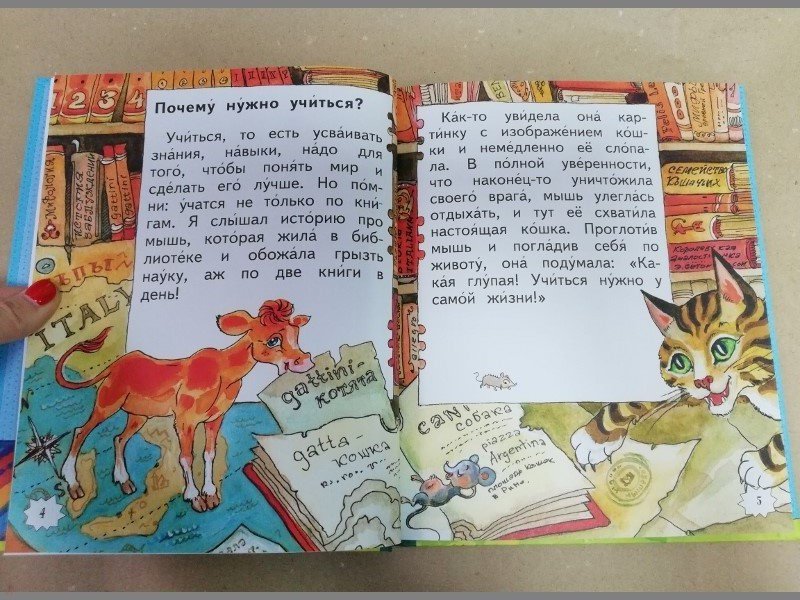 Почему́ ну́жно учи́ться?
Учи́ться, то есть усва́ивать
зна́ния, на́выки, на́до для
того́, что́бы поня́ть мир и
сде́лать его́ лу́чше. Но по́м-
ни: у́чатся не то́лько по кни́-
гам. Я слы́шал исто́рию про
мышь, кото́рая жила́ в биб-
лиоте́ке и обожа́ла грызть
нау́ку, аж по две кни́ги в
день!
ITALY
gattini-
котята
gatta-
кошка
4
Ка́к-то уви́дела она́ кар-
ти́нку с изображе́нием ко́ш-
ки и неме́дленно её сло́па-
ла. В по́лной уве́ренности,
что наконе́ц-то уничто́жила
своего́ врага́, мышь улегла́сь
отдыха́ть, и тут её схвати́ла
настоя́щая ко́шка. Проглоти́в
мышь и погла́див себя́ по
животу́, она́ поду́мала: «Ка-
ка́я глу́пая! Учи́ться ну́жно у
само́й жи́зни!»
семейство
кошачьих
CANI
собака
piazza
Argentina
площадь кошек
в Риме
5